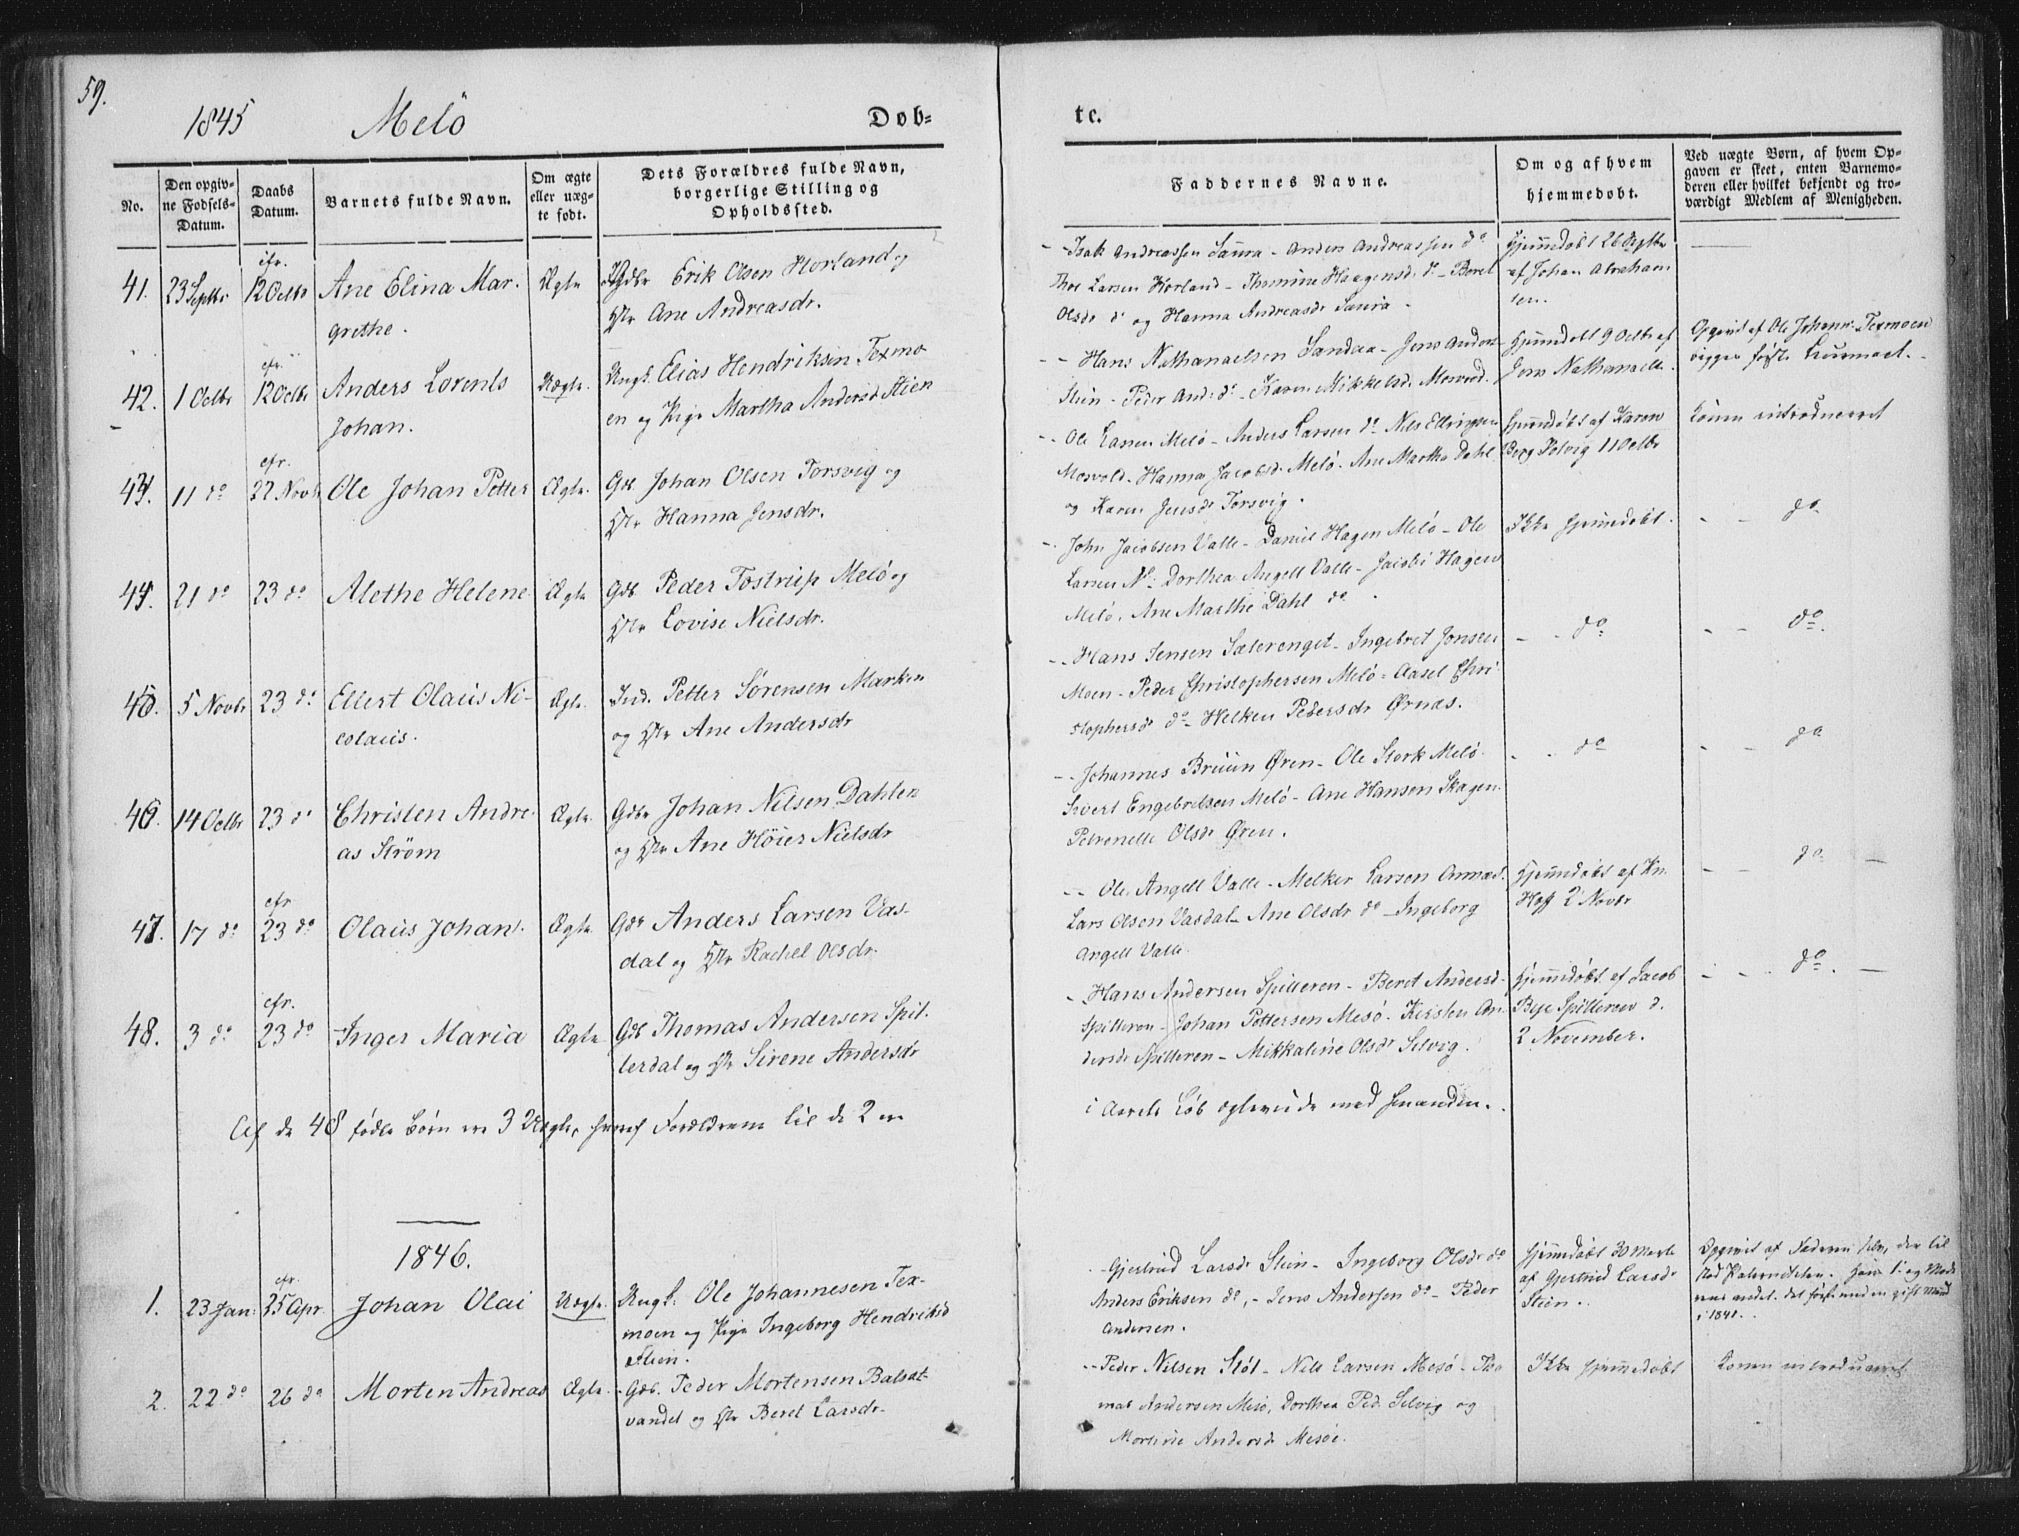 59.
1845 Melö Døb=
te.
No.
Den opgiv-
ne Fødsels-
Datum.
Daabs
Datum.
Barnets fulde Navn.
Om ægte
eller uæg-
te født.
Dets Forældres fulde Navn,
borgerlige Stilling og
Opholdssted.
Faddernes Navne.
Om og af hvem
hjemmedøbt.
Ved uægte Børn, af hvem Op-
gaven er skeet, enten Barnemo-
deren eller hvilket bekjendt og tro-
værdigt Medlem af Menigheden.
cfr.
41. 23 Septbr 12 Octbr Ane Elina Mar- Ægte Gdbr Erik Olsen Horland og
grethe. Hr Ane Andreasdr.
Isak Andreassen Saura - Anders Andreassen do
Thoe Larsen Horland - Haagensdr do - Beret
Olsdr do og Hanna Andreasdr Saura
Hjemmdøbt 26 Septbr
af Johan Abraham
sen.
cfr.
42. 1 Octbr 12 Octbr Anders Lorents Uægte. Ungk. Elias Hendriksen Texmo-
Johan. en og Pige Martha Andersdr Stien
Hans Nathanaelsen Sandaa - Jens Anders
Stien - Peder And: do - Karen Mikkelsd. Mosvold.
Hjemmdøbt 9 Octbr af
Jens Nathanaels.
Opgivet af Ole Johann: Texmoen
første Leiermaal.
cfr.
43. 11 do 22 Novbr Ole Johan Petter Ægte. Gdb. Johan Olsen Torsvig og
Hr Hanna Jensdr.
Ole Larsen Melö - Anders Larsen do Nils Ellingsen
Mosvold. Hanna Jacobsd. Melö. Ane Martha Dahl
og Karen Jensdr Torsvig.
Hjemmdøbt af Karen
Berg Selvig 11 Octbr
Konen introduceret
44. 21 do 23 do Alethe Helene Ægte Gdb. Peder Tostrup Melö og
Hr Lovise Nielsdr.
John Jacobsen Valle - Daniel Hagen Melö - Ole
Larsen Dorthea Angell Valle - Jacobi Hagen
Melö. Ane Marthe Dahl do
Ikke hjemmedøbt.
do
45. 5 Novbr 23 do Ellert Olaus Ni- Ægte. Ind. Petter Sørensen Marken
colaus. og Hr Ane Andersdr
Hans Jensen Sæterenget - Ingebret Jonsen
Moen - Peder Christophersen Melö - Aasel Chri-
stophersdr do - Helken Pedersdr Ørnæs.
do
do.
46. 14 Octbr 23 do Christen Andre- Ægte. Gdbr Johan Nilsen Dahlen
as Strøm og Hr Ane Høier Nielsdr
Johannes Bruun Øren - Ole Stork Melö -
Sivert Engebretsen Melö - Ane Hansen Skagen.
Petronelle Olsdr Øren.
do
do
cfr
47. 17 do 23 do Olaus Johan. Ægte. Gdbr Anders Larsen Vas-
dal og Hr Rachel Olsdr.
Ole Angell Valle - Melker Larsen Aarnæs.
Lars Olsen Vasdal - Ane Olsdr do - Ingeborg
Angell Valle.
Hjemmdøbt af Kn.
Hoff 2 Novbr
do
cfr.
48. 3 do 23 do Inger Maria Ægte Gdb Thomas Andersen Spil-
lerdal og Hr Sirene Andersdr
Hans Andersen Spilleren - Beret Andersd
Spilleren - Johan Pettersen Mesö - Kirsten An-
dersdr Spilleren - Mikkaline Olsdr Selvig.
Hjemmdøbt af Jacob
Bye Spilleren d.
2 November.
do.
Af de 48 fødte Børn ere 3 Uægte, hvoraf Forældrene til de 2 ere
i Aarets Løb ægteviede med hinanden.
1846.
cfr.
1. 23 Jan: 25 Apr. Johan Olai Uægte. Ungk: Ole Johannesen Tex-
moen og Pige Ingeborg Hendriksd
Stien.
Gjertrud Larsdr Stien - Ingeborg Olsdr do
Anders Eriksen do, - Jens Andersen do - Peder
Andersen.
Hjemmdøbt 30 Marts
af Gjertrud Larsdr
Stien.
Opgivet af Faderen selv, der til
stod Paterniteten. Hans 1: og Mode-
rens andet. det første med en gift Mand
i 1841.
2. 22 do 26 do Morten Andreas Ægte. Gdb. Peder Mortensen Balsat-
vandet og Hr Beret Larsdr.
Peder Nilsen Støt - Nils Larsen Mesö - Tho
mas Andersen Mesö, Dorthea Ped. Selvig og
Martine Andersdr Mesöe.
Ikke hjemmedøbt
Konen introduceret